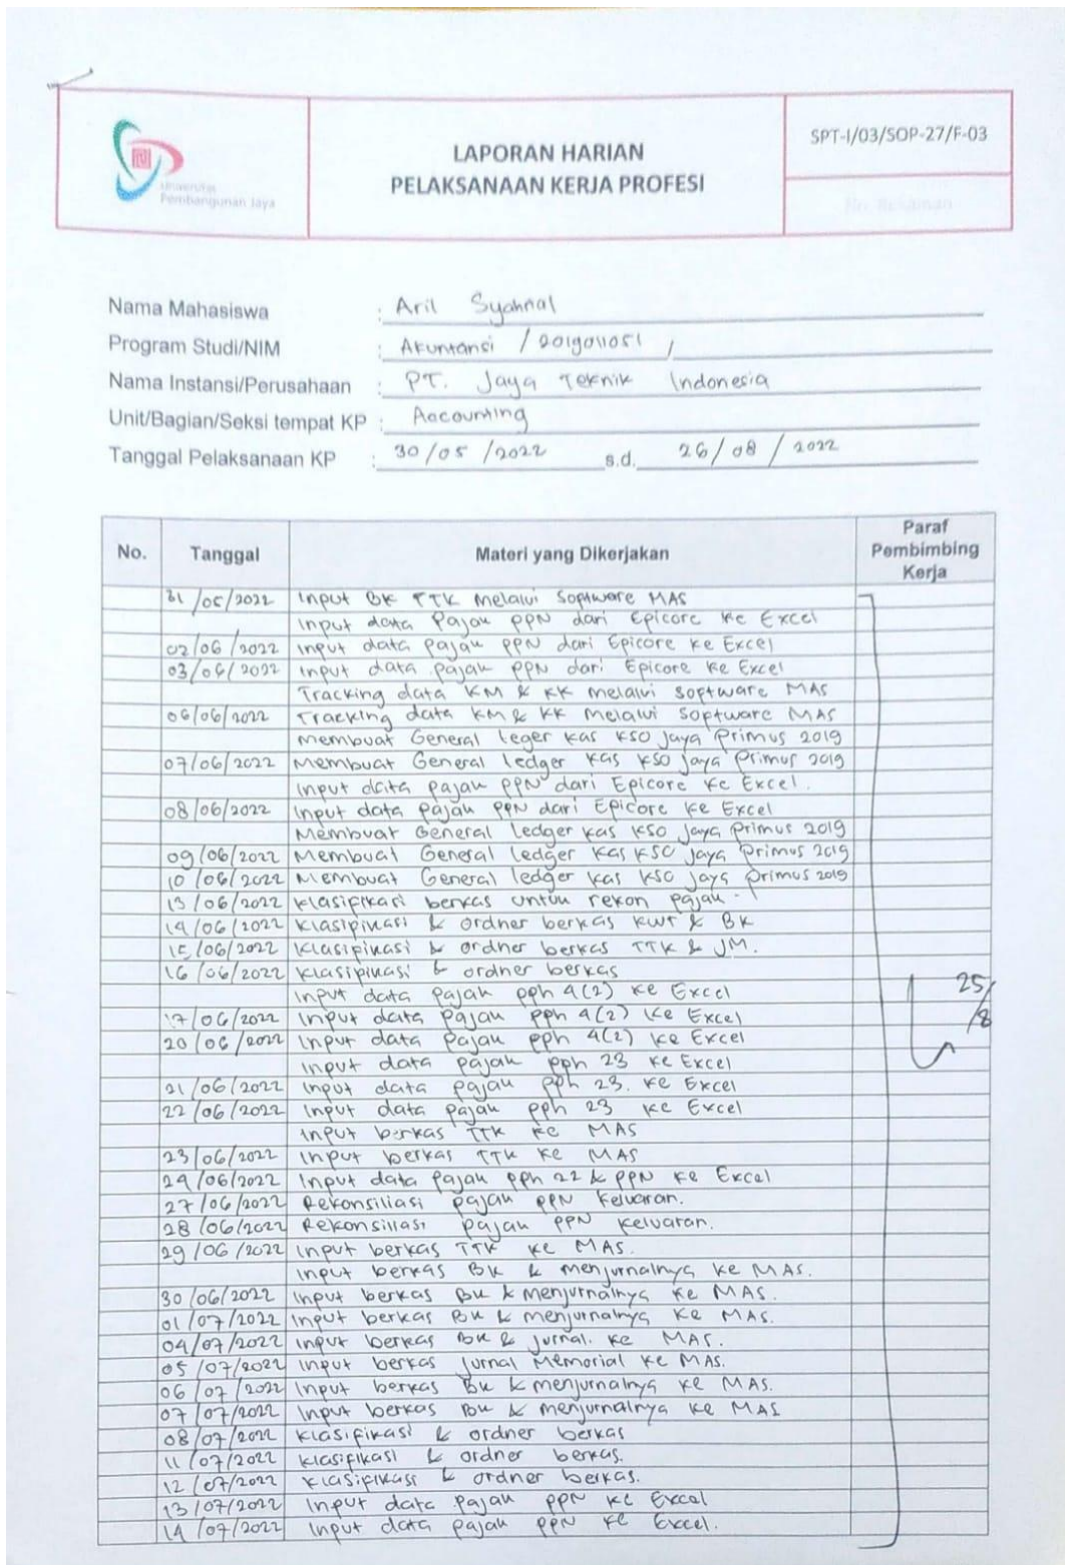 Universitas
Pembangunan Jaya
LAPORAN HARIAN
PELAKSANAAN KERJA PROFESI
SPT-I/03/SOP-27/F-03
Nama Mahasiswa : Aril Syahnal
Program Studi/NIM : Akuntansi / 2019011051 /
Nama Instansi/Perusahaan : PT. Jaya Teknik Indonesia
Unit/Bagian/Seksi tempat KP : Accounting
Tanggal Pelaksanaan KP : 30/05/2022 s.d. 26/08/2022
No. Tanggal Materi yang Dikerjakan Paraf Pembimbing Kerja
31/05/2022 Input BK TTK Melalui Soptware MAS
Input data Pajak PPN dari Epicore ke Excel
02/06/2022 Input data pajak PPN dari Epicore ke Excel
03/06/2022 Input data pajak PPN dari Epicore ke Excel
Tracking data KM & KK melalui soptware MAS
06/06/2022 Tracking data KM & KK Melalui Soptware MAS
Membuat General leger kas KSO Jaya Primus 2019
07/06/2022 Membuat General ledger kas KSO Jaya Primus 2019
Input data pajak PPN dari Epicore ke Excel.
08/06/2022 Input data pajak PPN dari Epicore ke Excel
Membuat General ledger kas KSO Jaya Primus 2019
09/06/2022 Membuat General ledger kas KSO Jaya Primus 2019
10/06/2022 Membuat General ledger kas KSO Jaya Primus 2019
13/06/2022 klasifikasi berkas untuk rekon pajak.
14/06/2022 klasipikasi & ordner berkas KWT & BK
15/06/2022 klasipikasi & ordner berkas TTK & JM.
16/06/2022 klasipikasi & ordner berkas
Input data pajak pph 4(2) ke Excel
17/06/2022 Input data Pajak PPh 4(2) ke Excel
20/06/2022 Input data Pajak pph 4(2) ke Excel
Input data pajak pph 23 ke Excel
21/06/2022 Input data pajak pph 23. ke Excel
22/06/2022 Input data pajak pph 23 ke Excel
Input berkas TTK ke MAS
23/06/2022 Input berkas TTK ke MAS
24/06/2022 Input data Pajak pph 22 & PPN ke Excel
27/06/2022 Rekonsiliasi pajak PPN Keluaran.
28/06/2022 Rekonsiliasi pajak PPN Keluaran.
29/06/2022 Input berkas TTK ke MAS.
Input berkas BK & menjurnalnya ke MAS.
30/06/2022 Input berkas BK & menjurnalnya ke MAS.
01/07/2022 Input berkas BK & menjurnalnya ke MAS.
04/07/2022 Input berkas BK & jurnal. ke MAS.
05/07/2022 Input berkas jurnal Memorial ke MAS.
06/07/2022 Input berkas BK & menjurnalnya ke MAS.
07/07/2022 Input berkas BK & menjurnalnya ke MAS
08/07/2022 klasifikasi & ordner berkas
11/07/2022 klasifikasi & ordner berkas.
12/07/2022 klasifikasi & ordner berkas.
13/07/2022 Input data pajak PPN ke Excel
14/07/2022 Input data pajak PPN ke Excel.
25/8